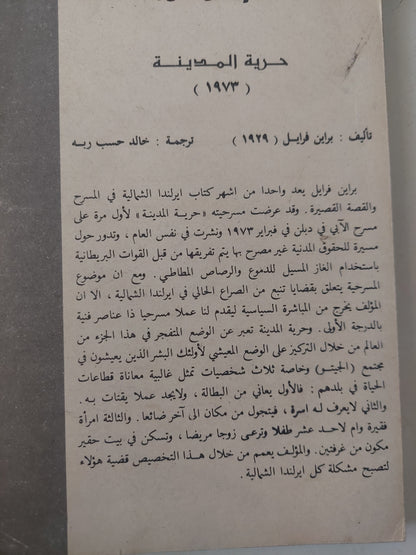 حرية المدينة
( ١٩٧٣ )
تأليف : براين فرايل ( ١٩٢٩ ) ترجمة : خالد حسب ربه
براين فرايل يعد واحدا من اشهر كتاب ايرلندا الشمالية في المسرح
والقصة القصيرة . وقد عرضت مسرحيته « حرية المدينة » لأول مرة على
مسرح الآبي في دبلن في فبراير ١٩٧٣ ونشرت في نفس العام ، وتدور حول
مسيرة للحقوق المدنية غير مصرح بها يتم تفريقها من قبل القوات البريطانية
باستخدام الغاز المسيل للدموع والرصاص المطاطي . ومع ان موضوع
المسرحية يتعلق بقضايا تنبع من الصراع الحالي في ايرلندا الشمالية ، الا ان
المؤلف يخرج من المباشرة السياسية ليقدم لنا عملا مسرحيا ذا عناصر فنية
بالدرجة الأولى . وحرية المدينة تعبر عن الوضع المتفجر في هذا الجزء من
العالم من خلال التركيز على الوضع المعيشي لأولئك البشر الذين يعيشون في
مجتمع ( الجيتو ) وخاصة ثلاث شخصيات تمثل غالبية معاناة قطاعات
الحياة في بلدهم : فالأول يعاني من البطالة ، ولايجد عملا يقتات به .
والثاني لايعرف له اسرة ، فيتجول من مكان الى آخر ضائعا . والثالثة امرأة
فقيرة وام لاحد عشر طفلا وترعى زوجا مريضا ، وتسكن في بيت حقير
مكون من غرفتين . والمؤلف يعمم من خلال هذا التخصيص قضية هؤلاء
لتصبح مشكلة كل ايرلندا الشمالية .